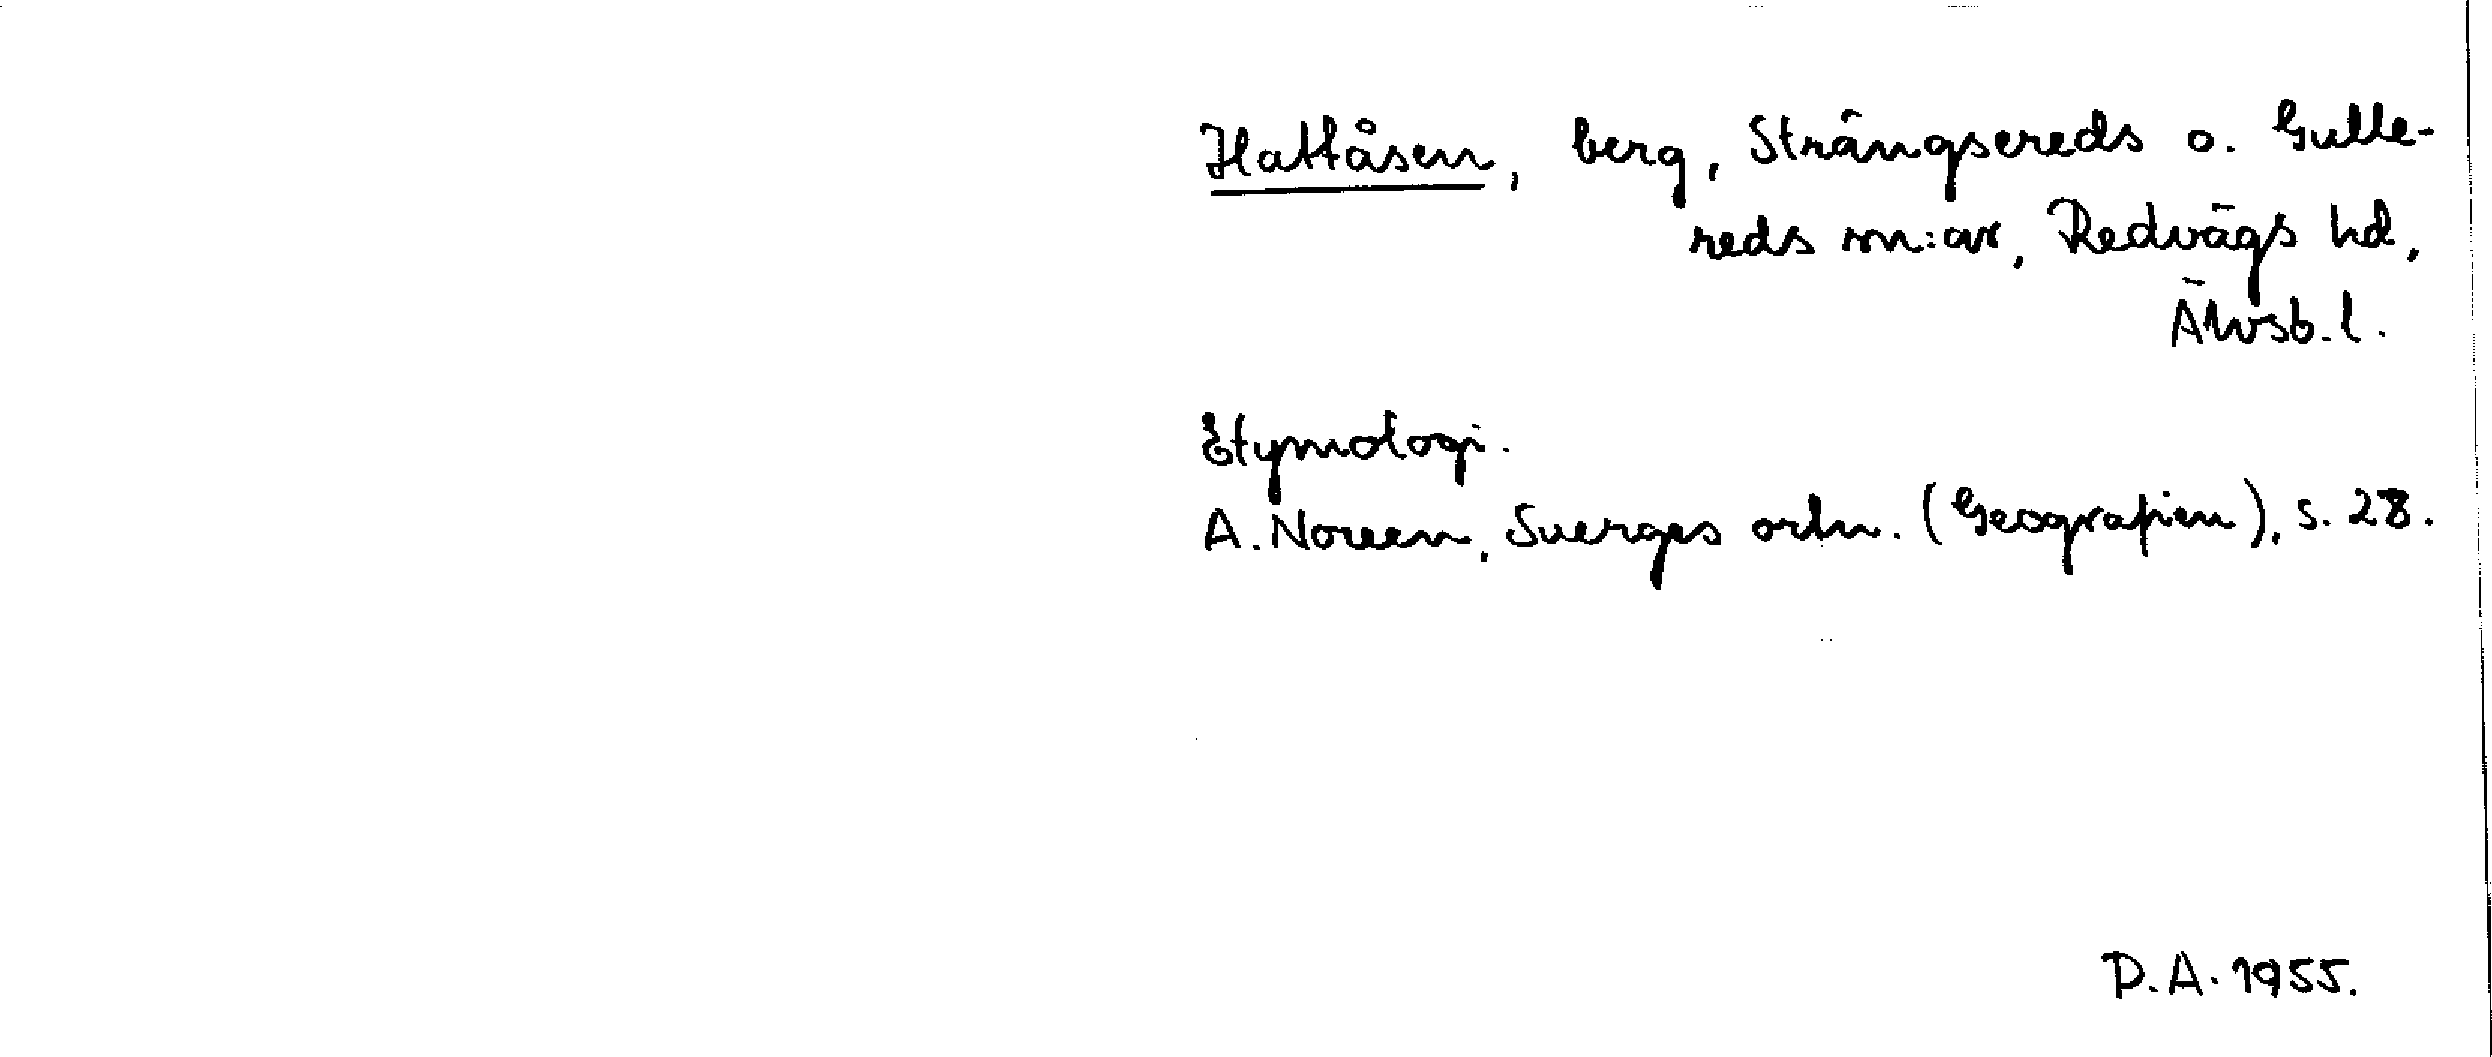 Hattåsen, berg, Strängsereds o. Gulle-
reds sn:ar, Redvägs hd,
Älvsb. l.
Etymologi.
A. Noreen, Sverges ortn. (Geografien), s. 28.
D.A. 1955.